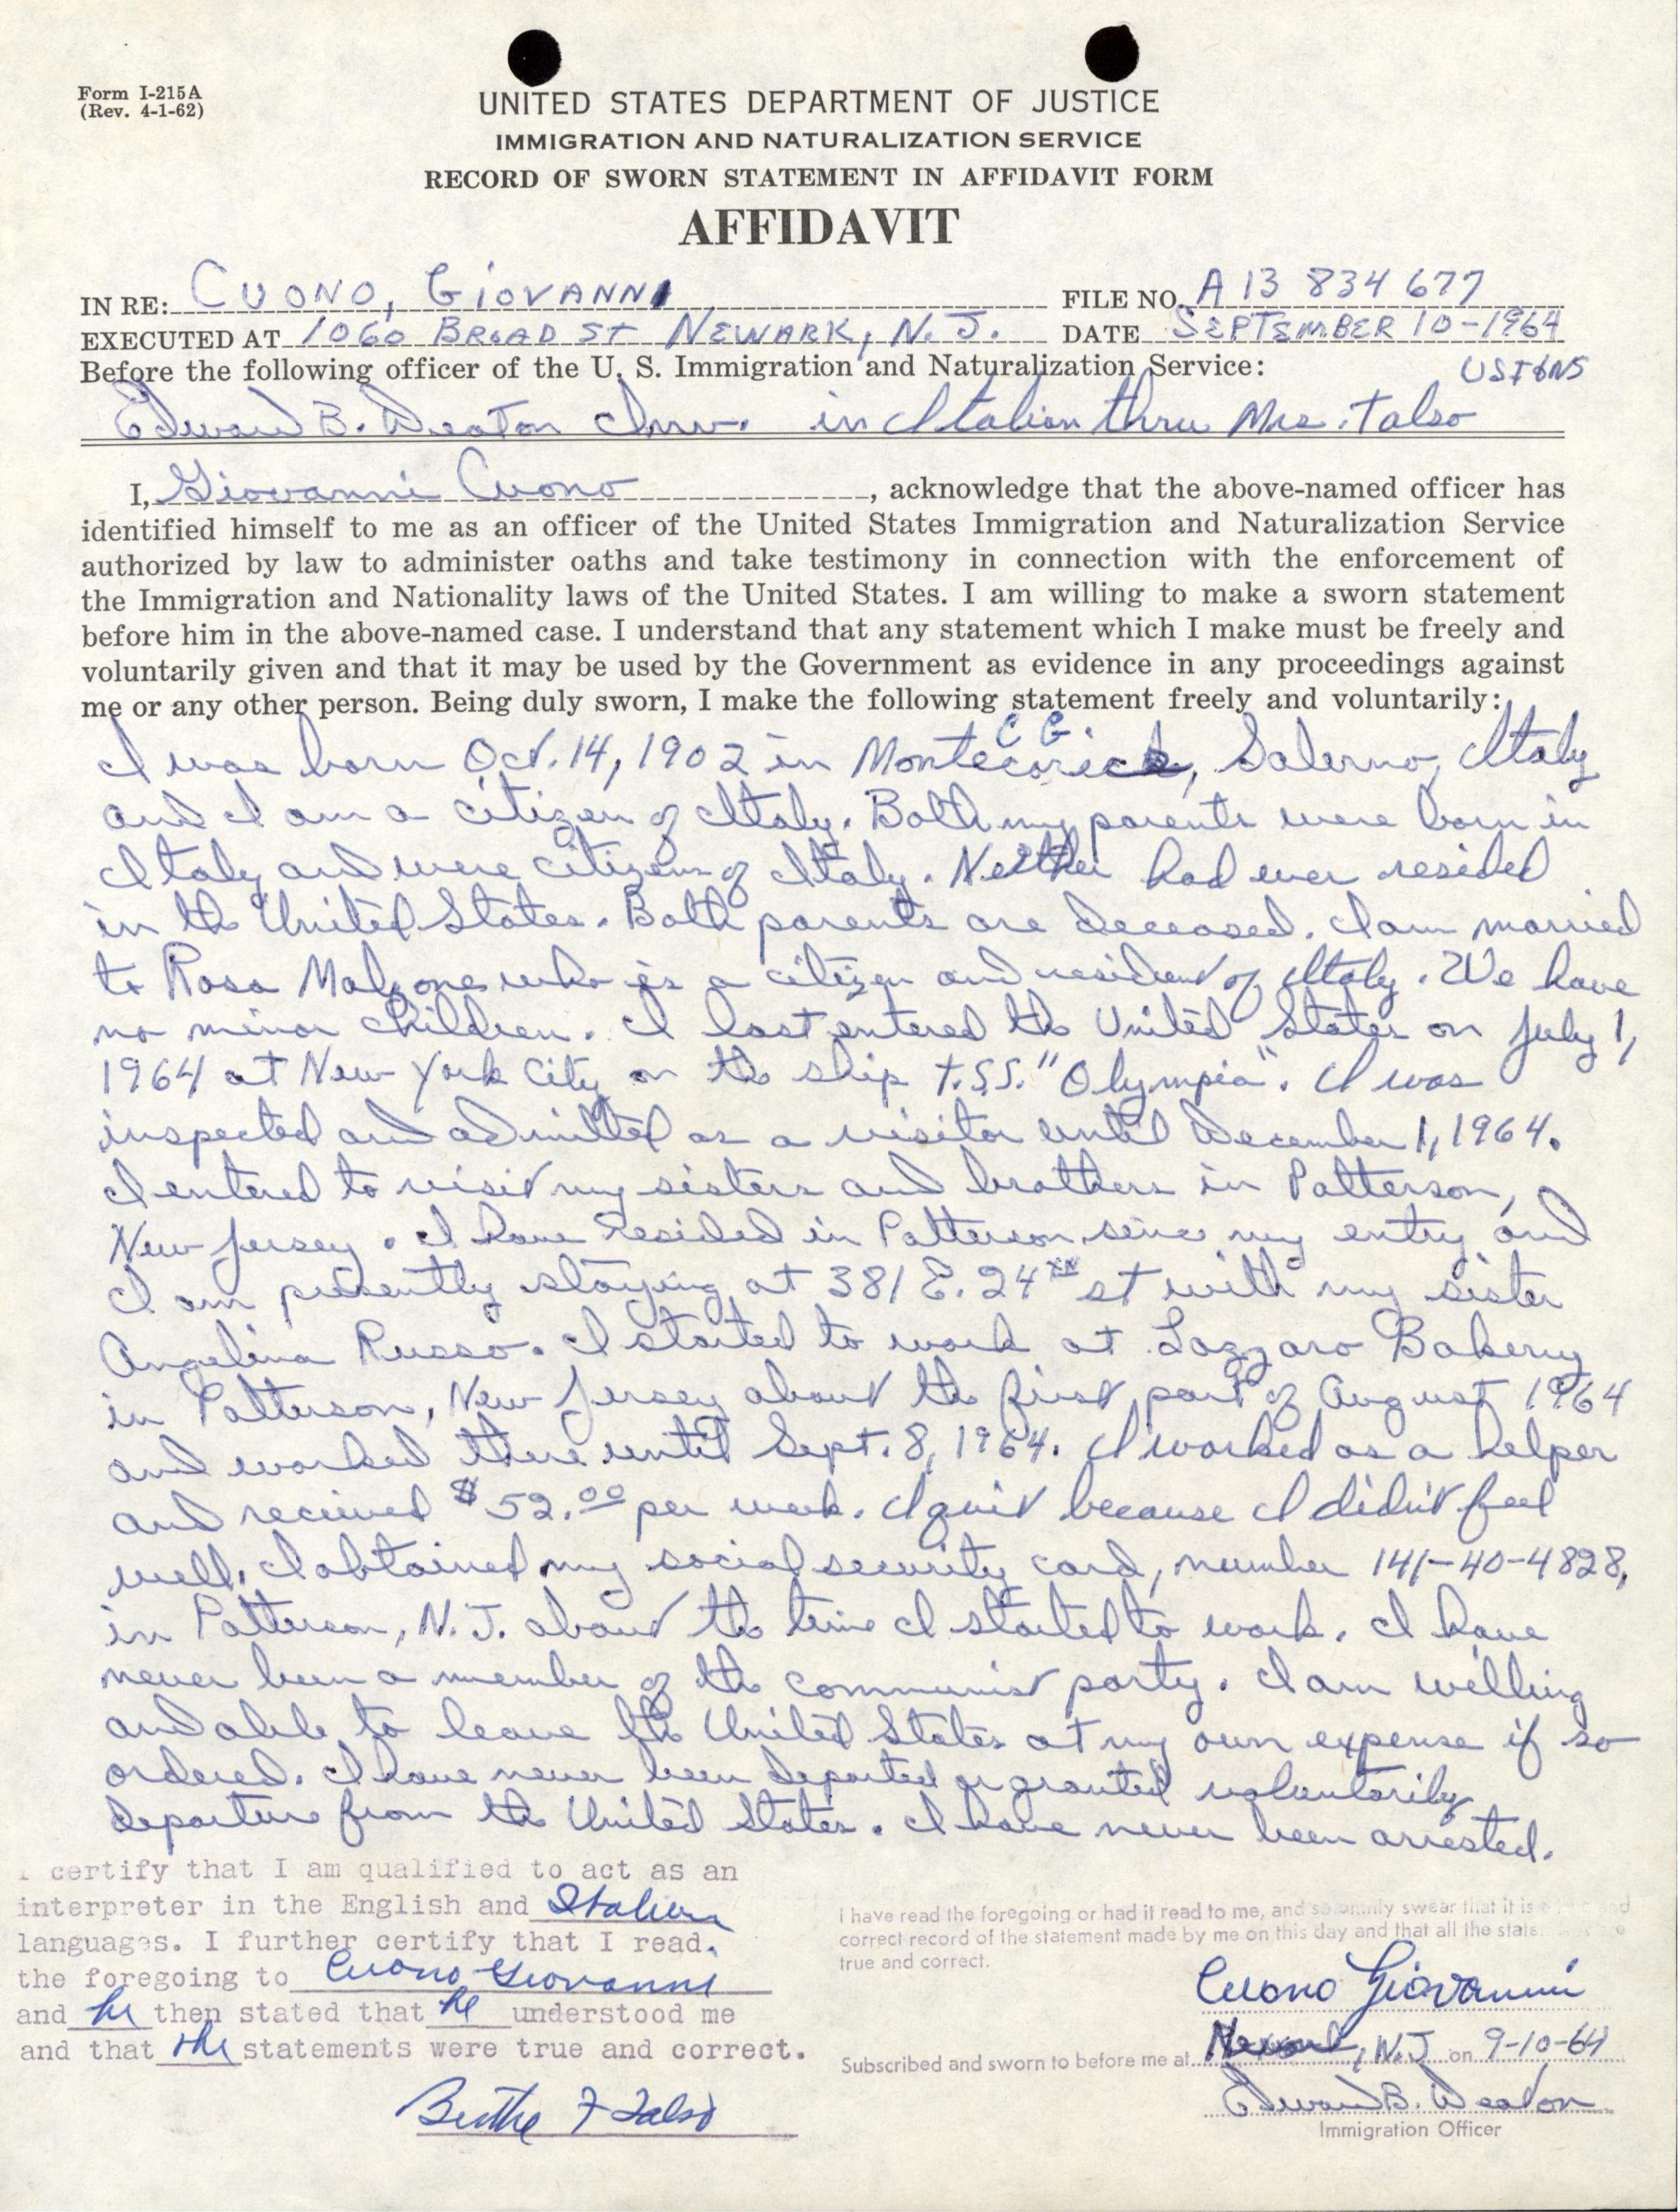 Form I-215A
(Rev. 4-1-62)
UNITED STATES DEPARTMENT OF JUSTICE
IMMIGRATION AND NATURALIZATION SERVICE
RECORD OF SWORN STATEMENT IN AFFIDAVIT FORM
AFFIDAVIT
IN RE: CUONO, GIOVANNI FILE NO. A 13 834 677
EXECUTED AT 1060 BROAD ST NEWARK, N.J. DATE SEPTEMBER 10-1964
Before the following officer of the U. S. Immigration and Naturalization Service: USI&NS
Edward B. Deaton Inv. in Italian thru Mrs. Talso
I, Giovanni Cuono, acknowledge that the above-named officer has
identified himself to me as an officer of the United States Immigration and Naturalization Service
authorized by law to administer oaths and take testimony in connection with the enforcement of
the Immigration and Nationality laws of the United States. I am willing to make a sworn statement
before him in the above-named case. I understand that any statement which I make must be freely and
voluntarily given and that it may be used by the Government as evidence in any proceedings against
me or any other person. Being duly sworn, I make the following statement freely and voluntarily:
I was born Oct. 14, 1902 in Salerno, Italy
and I am a citizen of Italy. Both my parents were born in
Italy and were citizens of Italy. Neither had ever resided
in the United States. Both parents are deceased. I am married
to Rosa Malzone who is a citizen and resident of Italy. We have
no minor children. I last entered the United States on July 1,
1964 at New York City on the ship T.S.S. "Olympia". I was
inspected and admitted as a visitor until December 1, 1964.
I entered to visit my sisters and brothers in Patterson,
New Jersey. I have resided in Patterson since my entry and
I am presently staying at 381 E. 24th st with my sister
Angelina Russo. I started to work at Lazzaro Bakery
in Patterson, New Jersey about the first part of August 1964
and worked there until Sept. 8, 1964. I worked as a helper
and recieved $52.00 per week. I quit because I didn't feel
well. I obtained my social security card, number 141-40-4828,
in Patterson, N.J. about the time I started to work. I have
never been a member of the communist party. I am willing
and able to leave the United States at my own expense if so
ordered. I have never been deported or granted voluntarily
departure from the United States. I have never been arrested.
I certify that I am qualified to act as an
interpreter in the English and Italian
languages. I further certify that I read
the foregoing to Cuono Giovanni
and he then stated that he understood me
and that the statements were true and correct.
Berthe F Talso
I have read the foregoing or had it read to me, and solemnly swear that it is and
correct record of the statement made by me on this day and that all the
true and correct.
Cuono Giovanni
Subscribed and sworn to before me at Newark, N.J. on 9-10-64
Edward B. Deaton
Immigration Officer